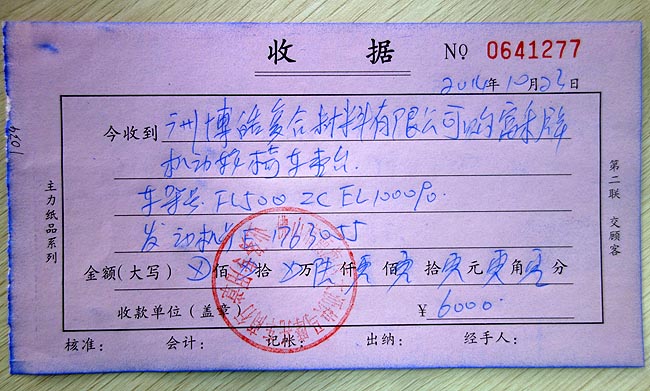 收据 № 0641277
2014年10月23日
今收到 州博皓复合材料有限公司购富禾牌
机动轮椅车壹台
车架号 FL500ZC EL100090
发动机号 E1763055
金额(大写) 佰 拾 万陆仟零佰零拾零元零角零分
收款单位(盖章) ¥6000.
核准: 会计: 记帐: 出纳: 经手人:
主力纸品系列
第二联 交顾客
1029